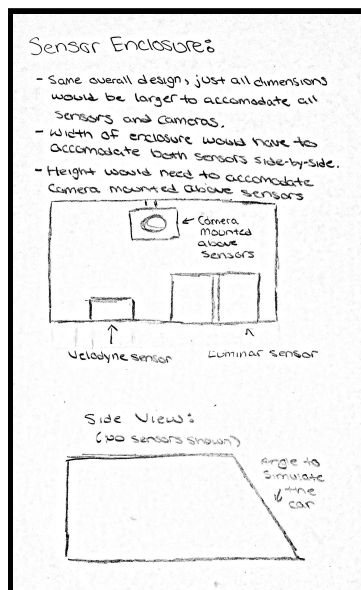 Sensor Enclosure:
- Same overall design, just all dimensions
would be larger to accomodate all
sensors and cameras.
- Width of enclosure would have to
accomodate both sensors side-by-side.
- Height would need to accomodate
camera mounted above sensors
Camera
mounted
above
sensors
Velodyne sensor
Luminar sensor
Side View:
(no sensors shown)
Angle to
simulate
the
car